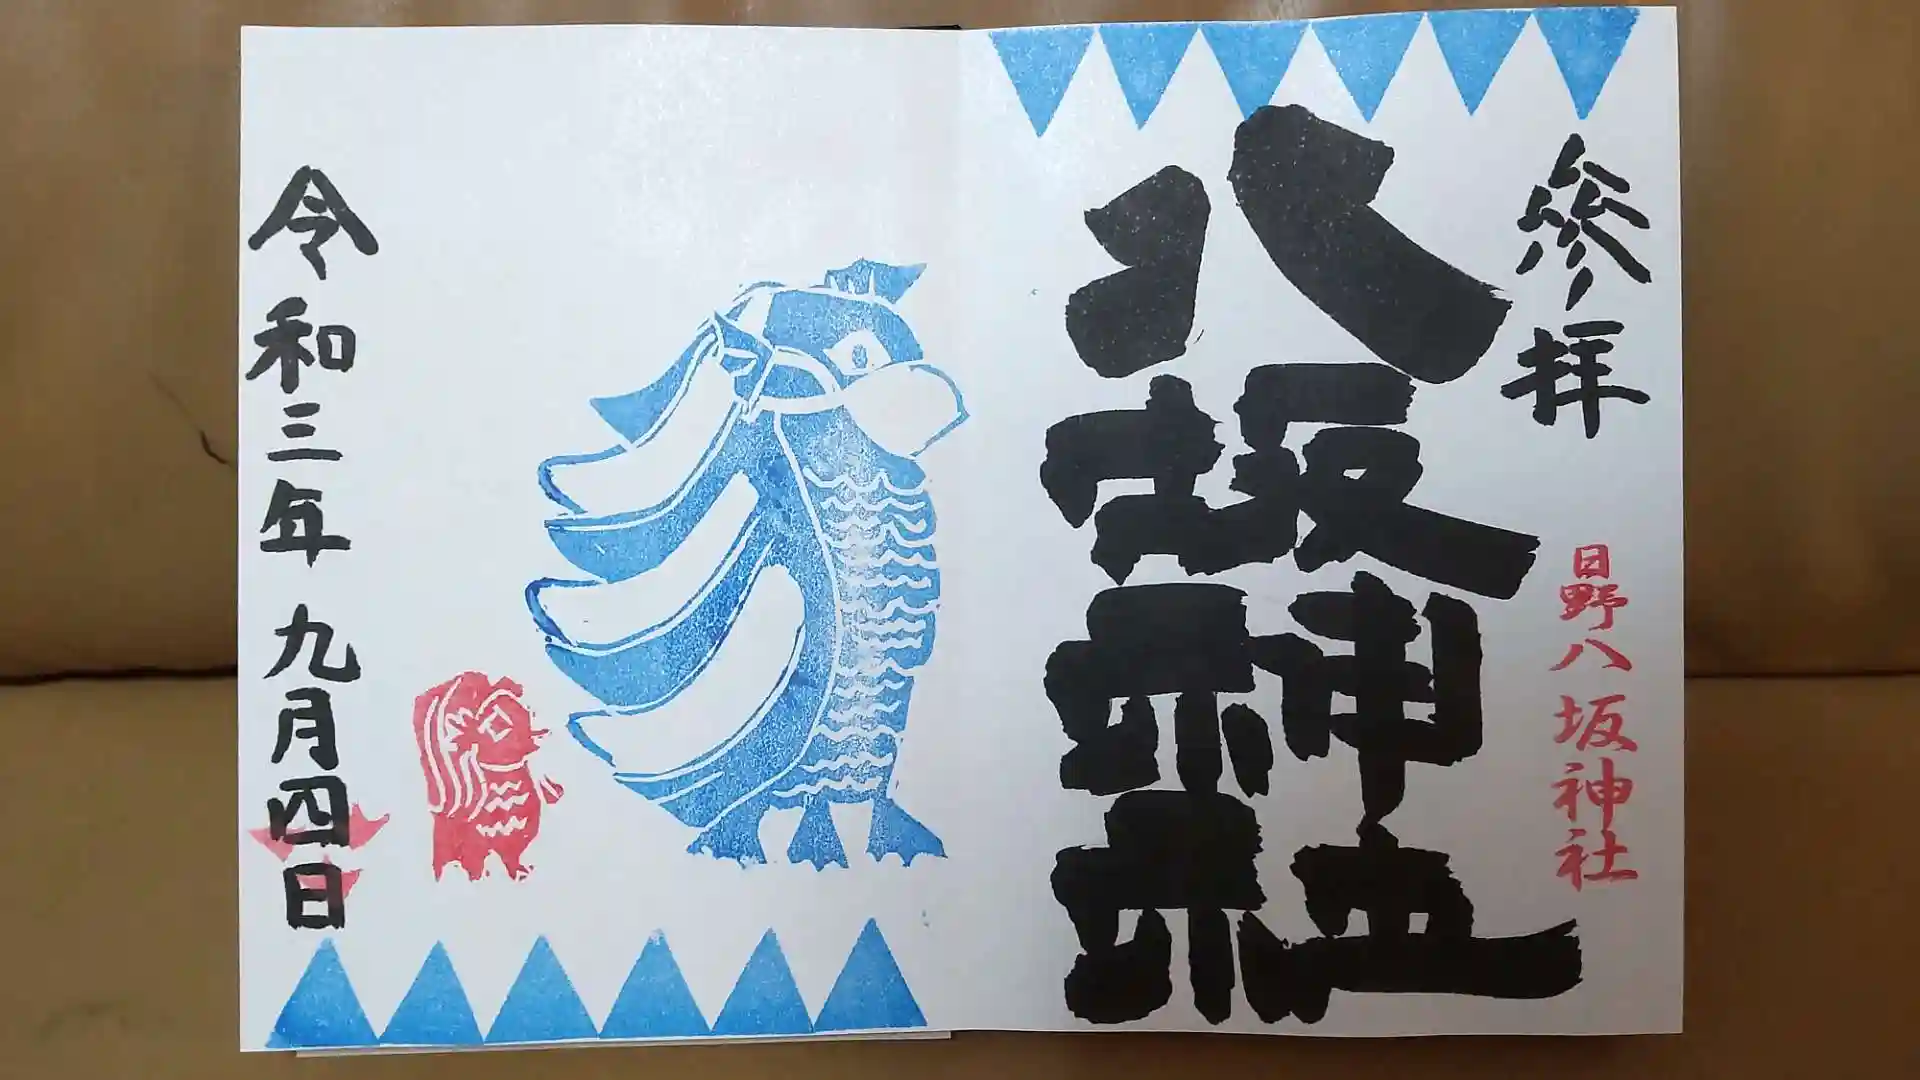 参拝
日野八坂神社
八坂神社
令和三年九月四日